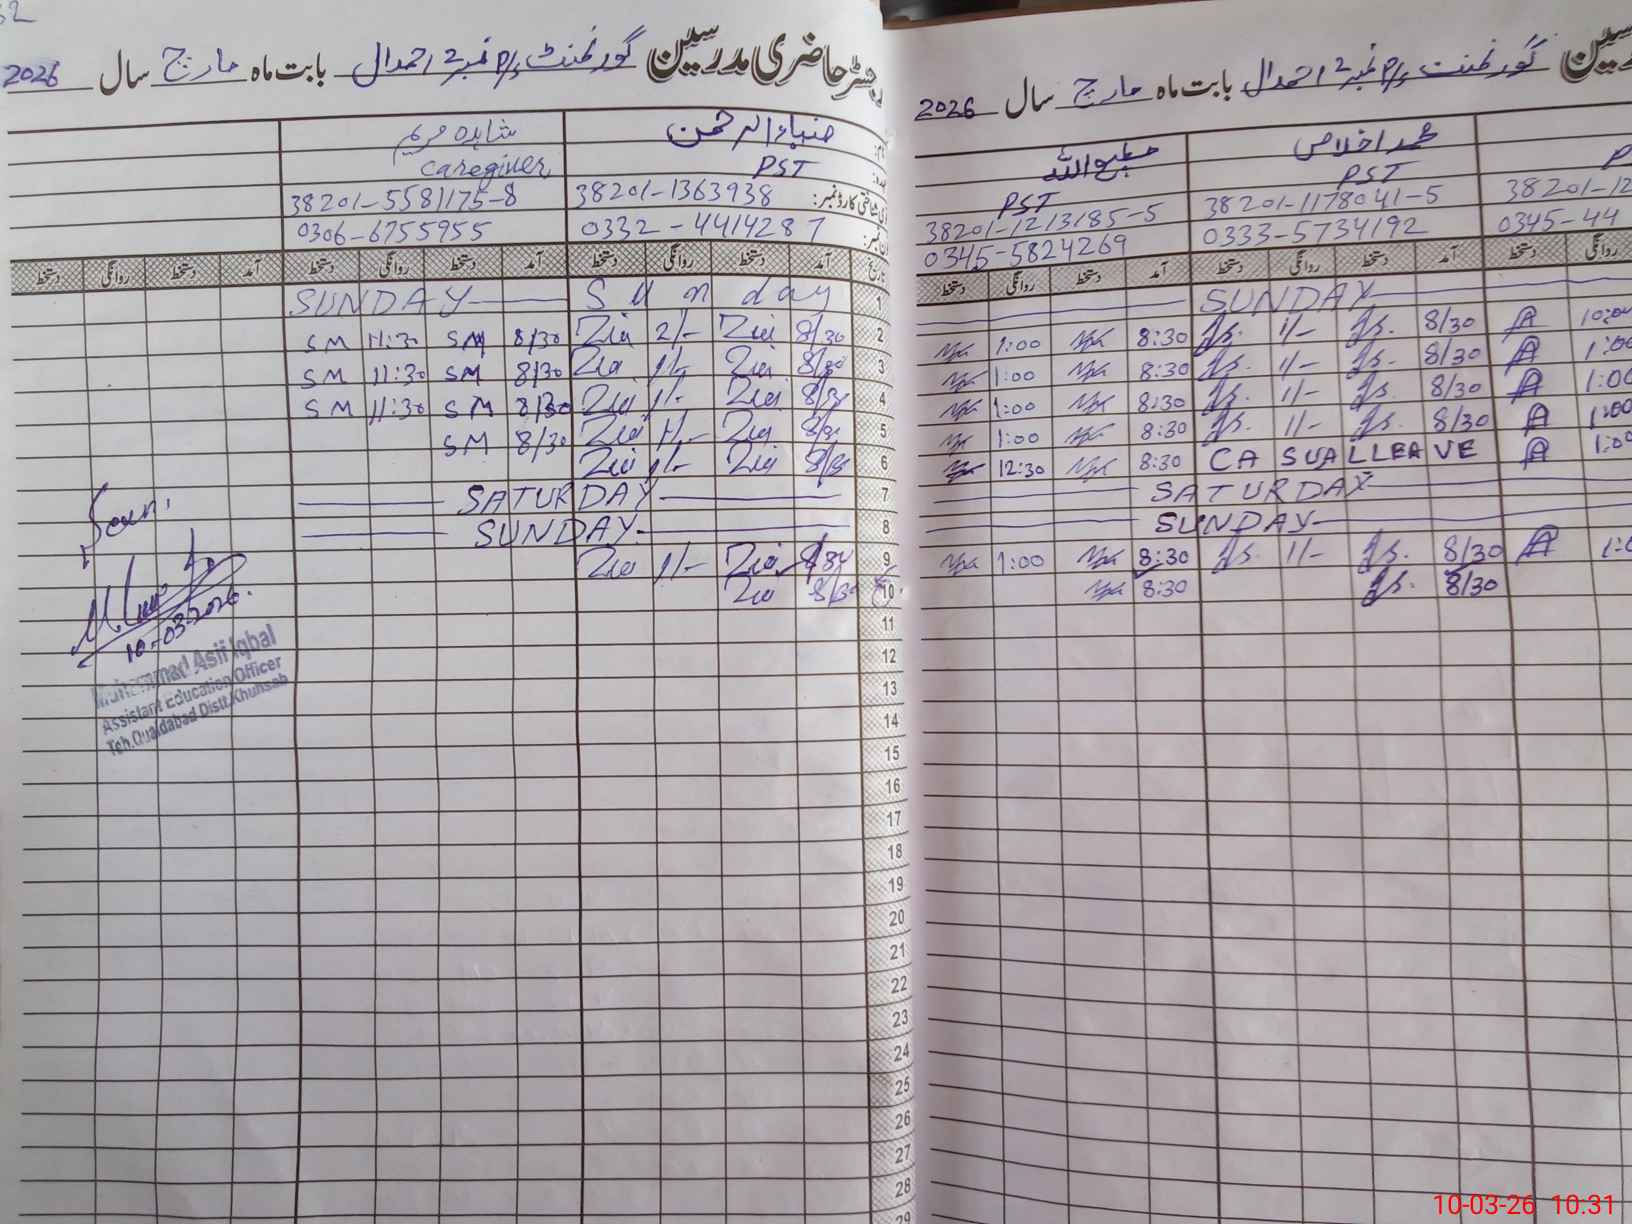 52
رجسٹر حاضری مدرسین گورنمنٹ P/S نمبر 2 احمدال بابت ماہ مارچ سال 2026
ضیاء الرحمن
شاہدہ مریم
PST
Caregiver
38201-1363938
38201-5581175-8
0332-4414287
0306-6755955
تاریخ آمد دستخط روانگی دستخط آمد دستخط روانگی دستخط آمد دستخط روانگی دستخط
1 Sunday SUNDAY
2 8/30 Zia 2/- Zia 8/30 SM 11:30 SM
3 8/30 Zia 1/- Zia 8/30 SM 11:30 SM
4 8/30 Zia 1/- Zia 8/30 SM 11:30 SM
5 8/30 Zia 1/- Zia 8/30 SM
6 8/30 Zia 1/- Zia
7 SATURDAY
8 SUNDAY
9 8/30 Zia 1/- Zia
10 8/30 Zia
11
12
13
14
15
16
17
18
19
20
21
22
23
24
25
26
27
28
29
Seen
10-03-2026
Muhammad Asif Iqbal
Assistant Education Officer
Teh.Quaidabad Distt.Khushab
گورنمنٹ P/S نمبر 2 احمدال بابت ماہ مارچ سال 2026
محمد اخلاص
مطیع اللہ
PST
PST
38201-12
38201-1178041-5
38201-1213185-5
0345-44
0333-5734192
0345-5824269
روانگی دستخط آمد دستخط روانگی دستخط آمد روانگی دستخط
SUNDAY
10:00 8/30 1/- 8:30 1:00
1:00 8/30 1/- 8:30 1:00
1:00 8/30 1/- 8:30 1:00
1:00 8/30 1/- 8:30 1:00
1:00 CASUAL LEAVE 8:30 12:30
SATURDAY
SUNDAY
8/30 1/- 8:30 1:00
8/30 8:30
10-03-26 10:31